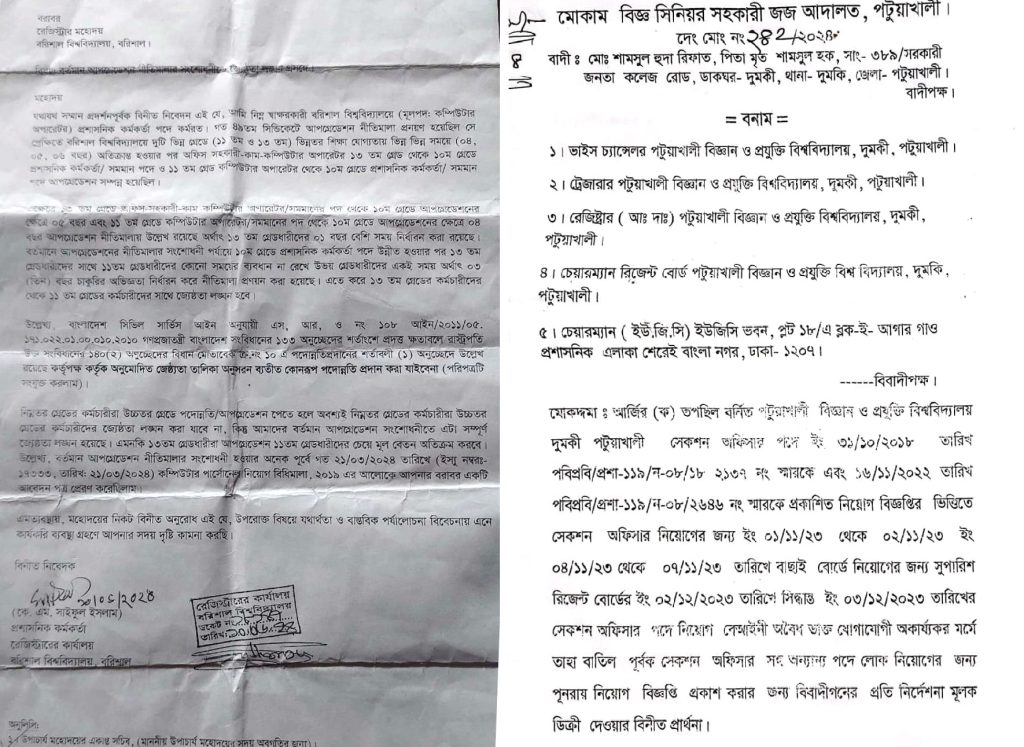 বরাবর
রেজিস্ট্রার মহোদয়
বরিশাল বিশ্ববিদ্যালয়, বরিশাল।
মহোদয়
যথাযথ সম্মান প্রদর্শনপূর্বক বিনীত নিবেদন এই যে, আমি নিম্ন স্বাক্ষরকারী বরিশাল বিশ্ববিদ্যালয়ে (মূলপদ: কম্পিউটার
অপারেটর) প্রশাসনিক কর্মকর্তা পদে কর্মরত। গত ৪৯তম সিন্ডিকেটে আপগ্রেডেশন নীতিমালা প্রণয়ণ হয়েছিল সে
প্রেক্ষিতে বরিশাল বিশ্ববিদ্যালয়ে দুটি ভিন্ন গ্রেডে (১১ তম ও ১৩ তম) ভিন্নতর শিক্ষা যোগ্যতায় ভিন্ন ভিন্ন সময়ে (০৪,
০৫, ০৬ বছর) অতিক্রান্ত হওয়ার পর অফিস সহকারী-কাম-কম্পিউটার অপারেটর ১৩ তম গ্রেড থেকে ১০ম গ্রেডে
প্রশাসনিক কর্মকর্তা/ সমমান পদে ও ১১ তম গ্রেড কম্পিউটার অপারেটর থেকে ১০ম গ্রেডে প্রশাসনিক কর্মকর্তা/ সমমান
পদে আপগ্রেডেশন সম্পন্ন হয়েছিল।
১৩ তম গ্রেডে অফিস-সহকারী-কাম কম্পিউটার অপারেটর/সমমানের পদ থেকে ১০ম গ্রেডে আপগ্রেডেশনের
ক্ষেত্রে ০৫ বছর এবং ১১ তম গ্রেডে কম্পিউটার অপারেটর/সমমানের পদ থেকে ১০ম গ্রেডে আপগ্রেডেশনের ক্ষেত্রে ০৪
বছর আপগ্রেডেশন নীতিমালায় উল্লেখ রয়েছে অর্থাৎ ১৩ তম গ্রেডধারীদের ০১ বছর বেশি সময় নির্ধারন করা রয়েছে।
বর্তমানে আপগ্রেডেশনের নীতিমালার সংশোধী পর্যায়ে ১০ম গ্রেডে প্রশাসনিক কর্মকর্তা পদে উন্নীত হওয়ার পর ১৩ তম
গ্রেডধারীদের সাথে ১১তম গ্রেডধারীদের কোনো সময়ের ব্যবধান না রেখে উভয় গ্রেডধারীদের একই সময় অর্থাৎ ০৩
(তিন) বছর চাকুরির অভিজ্ঞতা নির্ধারন করে নীতিমালা প্রণয়ন করা হয়েছে। এতে করে ১৩ তম গ্রেডের কর্মচারীদের
থেকে ১১ তম গ্রেডের কর্মচারীদের সাথে জ্যেষ্ঠতা লঙ্ঘন হবে।
উল্লেখ্য, বাংলাদেশ সিভিল সার্ভিস আইন অনুযায়ী এস, আর, ও নং ১০৮ আইন/২০১১/০৫.
১৭১.০২২.০১.০০.০১০.২০১০ গণপ্রজাতন্ত্রী বাংলাদেশ সংবিধানের ১৩৩ অনুচ্ছেদের শর্তাংশে প্রদত্ত ক্ষতাবলে রাষ্ট্রপতি
উক্ত সংবিধানের ১৪০(২) অনুচ্ছেদের বিধান মোতাবেক ক্র.নং ১০ এ পদোন্নতিপ্রদানের শর্তাবলী (১) অনুচ্ছেদে উল্লেখ
রয়েছে কর্তৃপক্ষ কর্তৃক অনুমোদিত জেষ্ঠ্যতা তালিকা অনুসরন ব্যতীত কোনরূপ পদোন্নতি প্রদান করা যাইবেনা (পরিপত্রটি
সংযুক্ত করলাম)।
নিম্নতর গ্রেডের কর্মচারীরা উচ্চতর গ্রেডে পদোন্নতি/আপগ্রেডেশন পেতে হলে অবশ্যই নিম্নতর গ্রেডের কর্মচারীরা উচ্চতর
গ্রেডের কর্মচারীদের জ্যেষ্ঠতা লঙ্ঘন করা যাবে না, কিন্তু আমাদের বর্তমান আপগ্রেডেশন সংশোধনীতে এটা সম্পূর্ণ
জ্যেষ্ঠতা লঙ্ঘন হয়েছে। এমনকি ১৩তম গ্রেডধারীরা আপগ্রেডেশন ১১তম গ্রেডধারীদের চেয়ে মূল বেতন অতিক্রম করবে।
উল্লেখ্য, বর্তমান আপগ্রেডেশন নীতিমালার সংশোধনী হওয়ার অনেক পূর্বে গত ২১/০৩/২০২৪ তারিখে (ইস্যু নম্বরঃ-
১৭৩৩৩, তারিখ: ২১/০৩/২০২৪) কম্পিউটার পার্সোনেল নিয়োগ বিধিমালা, ২০১৯ এর আলোকে আপনার বরাবর একটি
আবেদন পত্র প্রেরণ করেছিলাম।
এমতাবস্থায়, মহোদয়ের নিকট বিনীত অনুরোধ এই যে, উপরোক্ত বিষয়ে যথার্থতা ও বাস্তবিক পর্যালোচনা বিবেচনায় এনে
কার্যকার ব্যবস্থা গ্রহণে আপনার সদয় দৃষ্টি কামনা করছি।
বিনীত নিবেদক
(কে. এম. সাইফুল ইসলাম)
প্রশাসনিক কর্মকর্তা
রেজিস্ট্রারের কার্যালয়
বরিশাল বিশ্ববিদ্যালয়, বরিশাল
রেজিস্ট্রারের কার্যালয়
বরিশাল বিশ্ববিদ্যালয়
অনুলিপি:
১। উপাচার্য মহোদয়ের একান্ত সচিব, (মাননীয় উপাচার্য মহোদয়ের সদয় অবগতির জন্য)।
মোকাম বিজ্ঞ সিনিয়র সহকারী জজ আদালত, পটুয়াখালী।
দেং মোং নং ২৪২/২০২৪
বাদী ঃ মোঃ শামসুল হুদা রিফাত, পিতা মৃত শামসুল হক, সাং- ৩৮৯/সরকারী
জনতা কলেজ রোড, ডাকঘর- দুমকী, থানা- দুমকি, জেলা- পটুয়াখালী।
বাদীপক্ষ।
= বনাম =
১। ভাইস চ্যান্সেলর পটুয়াখালী বিজ্ঞান ও প্রযুক্তি বিশ্ববিদ্যালয়, দুমকী, পটুয়াখালী।
২। ট্রেজারার পটুয়াখালী বিজ্ঞান ও প্রযুক্তি বিশ্ববিদ্যালয়, দুমকী, পটুয়াখালী।
৩। রেজিষ্ট্রার ( আঃ দাঃ) পটুয়াখালী বিজ্ঞান ও প্রযুক্তি বিশ্ববিদ্যালয়, দুমকী,
পটুয়াখালী।
৪। চেয়ারম্যান রিজেন্ট বোর্ড পটুয়াখালী বিজ্ঞান ও প্রযুক্তি বিশ্ব বিদ্যালয়, দুমকি,
পটুয়াখালী।
৫। চেয়ারম্যান ( ইউ.জি.সি) ইউজিসি ভবন, প্লট ১৮/এ ব্লক-ই- আগার গাও
প্রশাসনিক এলাকা শেরেই বাংলা নগর, ঢাকা- ১২০৭।
------বিবাদীপক্ষ।
মোকদ্দমা ঃ আর্জির (ক) তপছিল বর্নিত পটুয়াখালী বিজ্ঞান ও প্রযুক্তি বিশ্ববিদ্যালয়
দুমকী পটুয়াখালী সেকশন অফিসার পদে ইং ৩১/১০/২০১৮ তারিখ
পবিপ্রবি/প্রশা-১১৯/ন-০৮/১৮ ২১৩৭ নং স্মারকে এবং ১৬/১১/২০২২ তারিখ
পবিপ্রবি/প্রশা-১১৯/ন-০৮/২৬৪৬ নং স্মারকে প্রকাশিত নিয়োগ বিজ্ঞপ্তির ভিত্তিতে
সেকশন অফিসার নিয়োগের জন্য ইং ০১/১১/২৩ থেকে ০২/১১/২৩ ইং
০৪/১১/২৩ থেকে ০৭/১১/২৩ তারিখে বাছাই বোর্ডে নিয়োগের জন্য সুপারিশ
রিজেন্ট বোর্ডের ইং ০২/১২/২০২৩ তারিখে সিদ্ধান্ত ইং ০৩/১২/২০২৩ তারিখের
সেকশন অফিসার পদে নিয়োগ বেআইনী অবৈধ যোগাযোগী অকার্য্যকর মর্মে
তাহা বাতিল পূর্বক সেকশন অফিসার সহ অন্যান্য পদে লোক নিয়োগের জন্য
পুনরায় নিয়োগ বিজ্ঞপ্তি প্রকাশ করার জন্য বিবাদীগনের প্রতি নির্দেশনা মূলক
ডিক্রী দেওয়ার বিনীত প্রার্থনা।